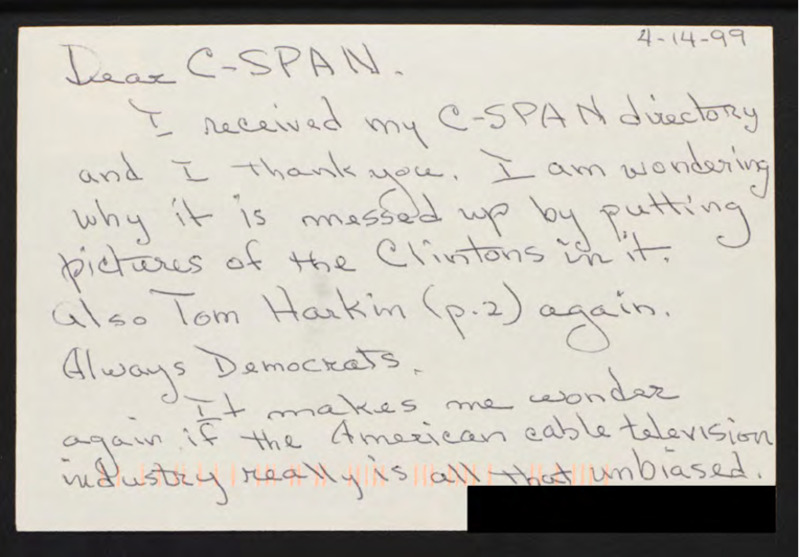 4-14-99
Dear C-SPAN.
I received my C-SPAN directory
and I thank you. I am wondering
why it is messed up by putting
pictures of the Clintons in it.
Also Tom Harkin (p.2) again.
Always Democrats.
It makes me wonder
again if the American cable television
industry really is all that unbiased.